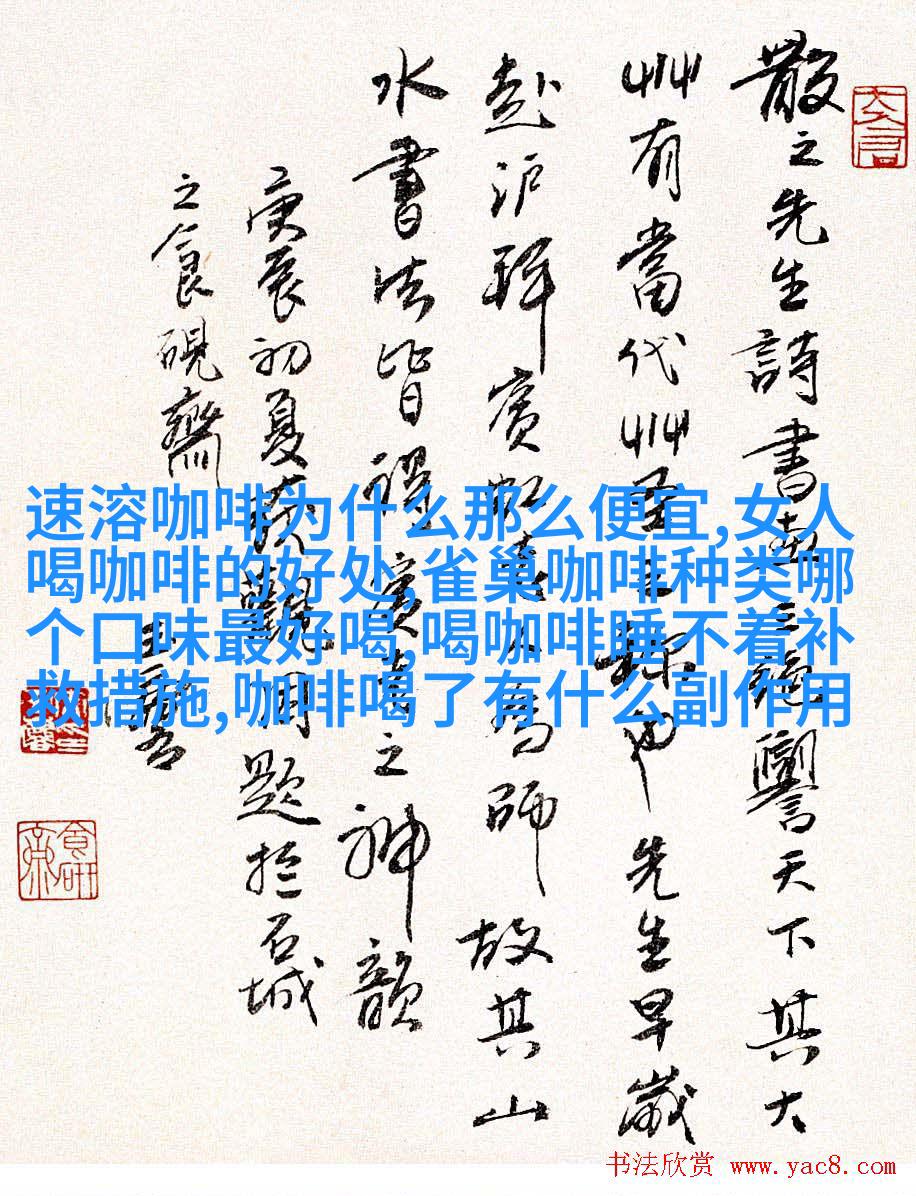 散之先生詩書畫三絕譽天下其大
艸有當代艸聖之稱也先生早歲
赴沪拜賓虹老人為師故其山
水書法皆得賓老之神韻
庚辰初夏 觀 題於石城
之食硯齋
速溶咖啡为什么那么便宜,女人
喝咖啡的好处,雀巢咖啡种类哪
个口味最好喝,喝咖啡睡不着补
救措施,咖啡喝了有什么副作用
书法欣赏 www.yac8.com